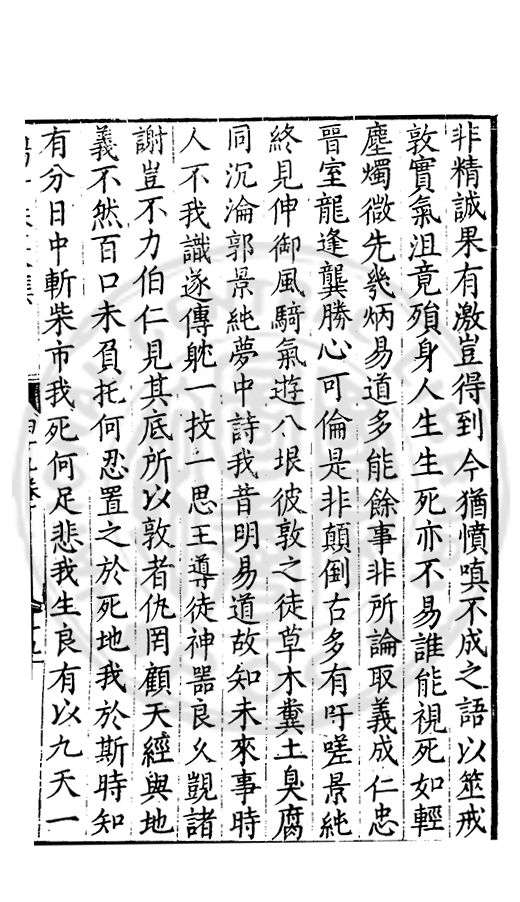 非精誠果有激豈得到今猶憤嗔不成之語以筮戒
敦實氣沮竟殞身人生生死亦不易誰能視死如輕
塵燭微先幾炳易道多能餘事非所論取義成仁忠
晉室龍逢龔勝心可倫是非顛倒古多有吁嗟景純
終見伸御風騎氣遊八垠彼敦之徒草木糞土臭腐
同沉淪郭景純夢中詩我昔明易道故知未來事時
人不我識遂傳躭一技一思王導徒神器良久覬諸
謝豈不力伯仁見其底所以敦者仇罔顧天經與地
義不然百口未負托何忍置之於死地我於斯時知
有分日中斬柴市我死何足悲我生良有以九天一